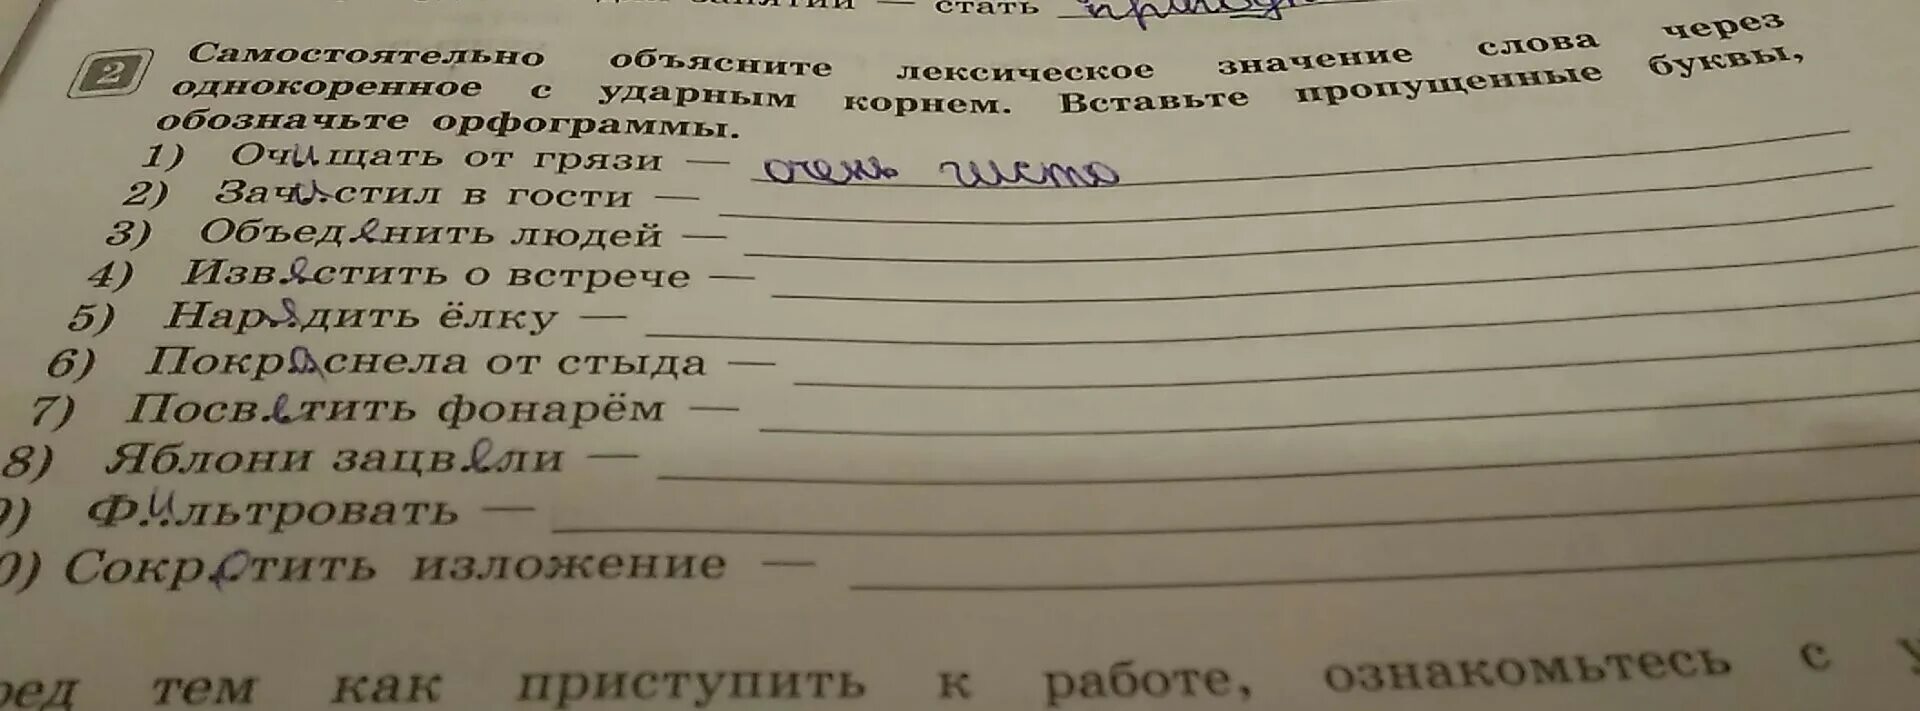 — стать
2 Самостоятельно объясните лексическое значение слова через
однокоренное с ударным корнем. Вставьте пропущенные буквы,
обозначьте орфограммы.
1) Очищать от грязи — очень чисто
2) Зачистил в гости —
3) Объеденить людей —
4) Известить о встрече —
5) Нарядить ёлку —
6) Покраснела от стыда —
7) Посветить фонарём —
8) Яблони зацвели —
9) Фильтровать —
0) Сокротить изложение —
ред тем как приступить к работе, ознакомьтесь с у